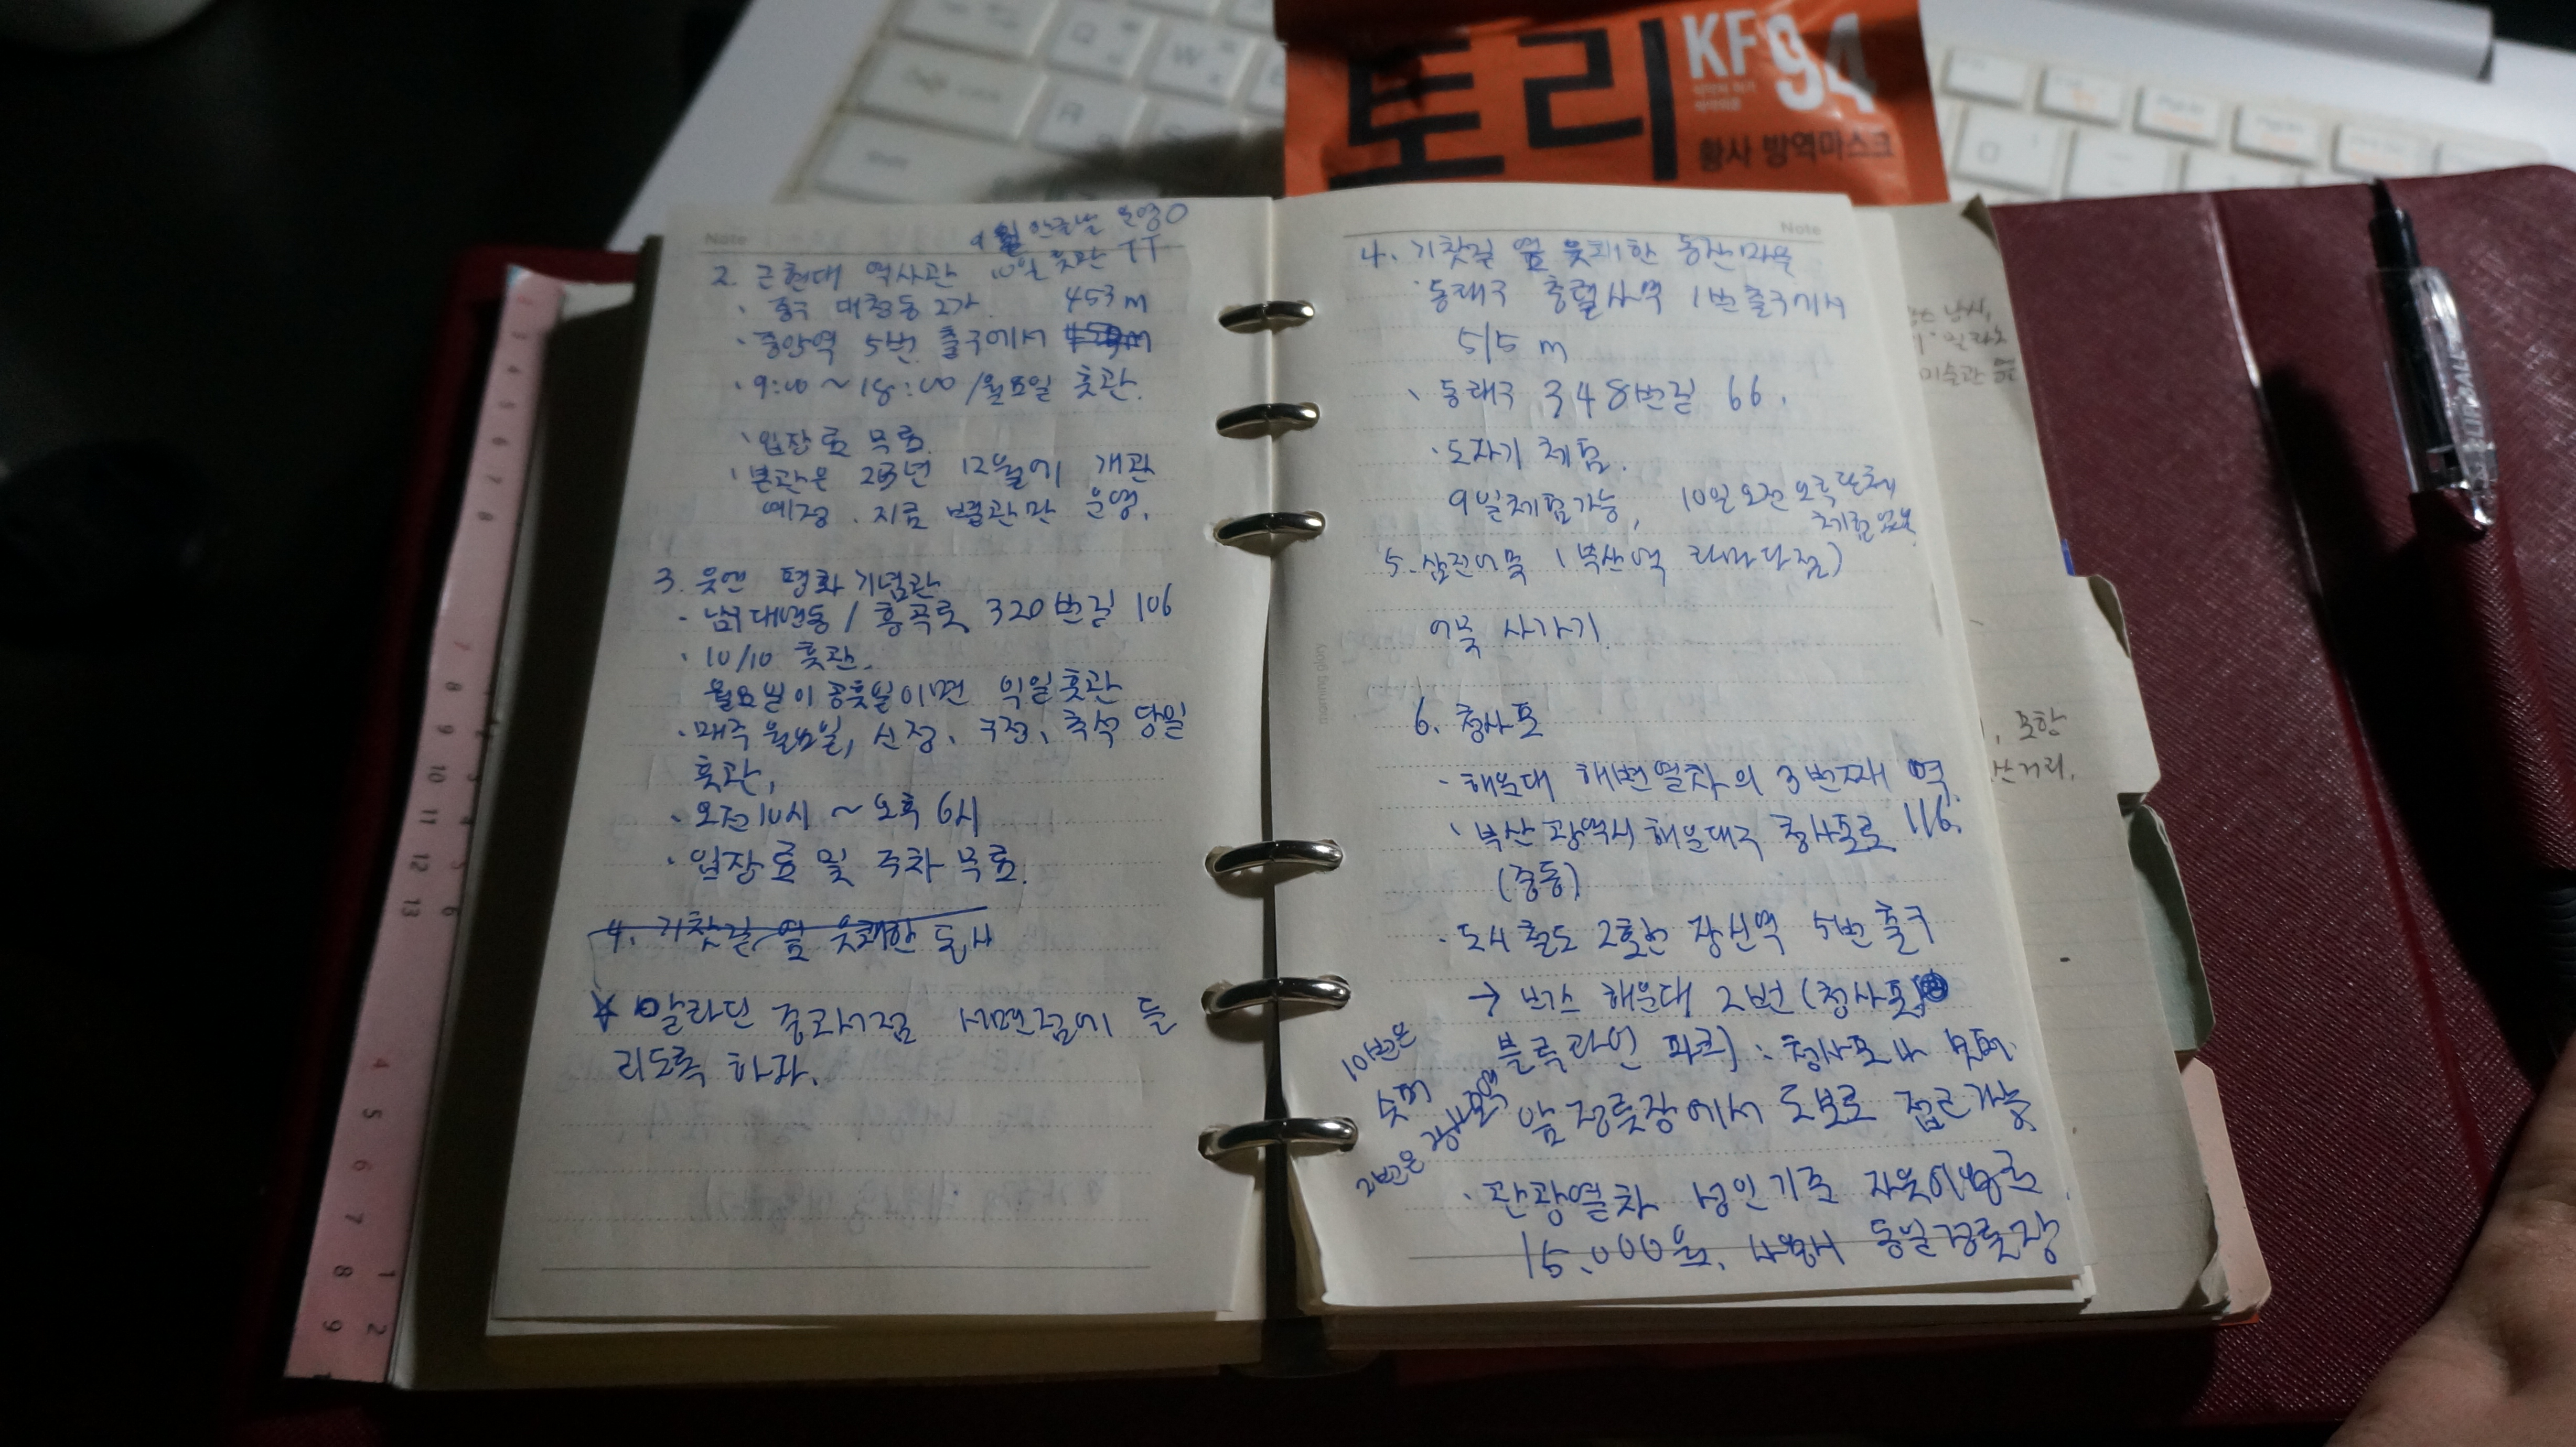 토리
KF94
황사 방역마스크
Note
운영O
2. 근현대 역사관 10일 휴관 ㅠㅠ
· 중구 대청동 2가. 453m
· 중앙역 5번 출구에서
· 9:00 ~ 18:00 / 월요일 휴관.
· 입장료 무료.
· 본관은 23년 12월에 개관
예정. 지금 별관만 운영.
3. 유엔 평화기념관
· 남구 대연동 / 홍곡로 320번길 106
· 10/10 휴관.
월요일이 공휴일이면 익일휴관
· 매주 월요일, 신정, 구정, 추석 당일
휴관,
· 오전10시 ~ 오후 6시
· 입장료 및 주차 무료.
4. 기찻길 옆 유쾌한 동
알라딘 중고서점 서면점에 들
리도록 하자.
Note
4. 기찻길 옆 유쾌한 동산마을
· 동래구 충렬사역 1번출구에서
515 m
· 동래구 348번길 66.
· 도자기 체험.
9일체험가능, 10일 오전 오후 단체
체험
5. 삼진어묵 (부산역 라마다점)
어묵 사가기
6. 청사포
· 해운대 해변열차의 3번째 역.
· 부산광역시 해운대구 청사포로 116.
(중동)
· 도시철도 2호선 장산역 5번 출구
→ 버스 해운대 2번 (청사포,
블루라인 파크) : 청사포
앞 정류장에서 도보로 접근가능
10번은
2번은
· 관광열차 성인기준 자유이용료
15,000원. 동일정류장
미술관
, 포함
morning glory